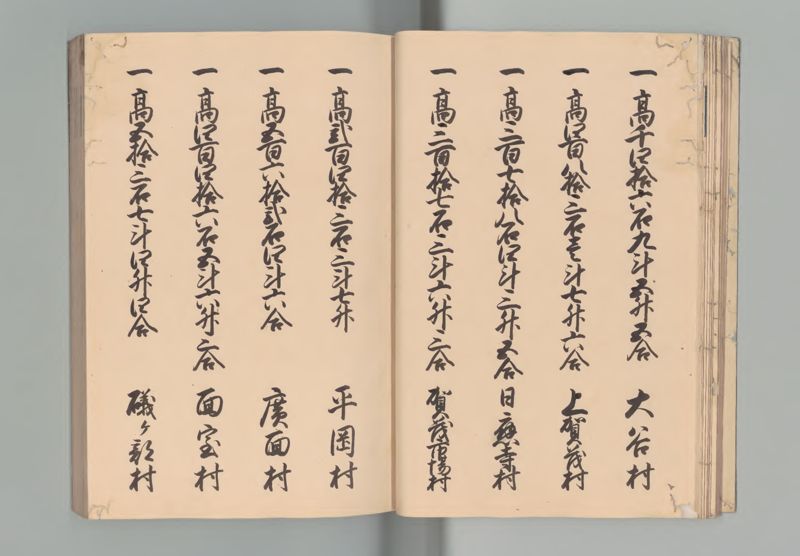 一 高千四拾六石九斗五升五合 大谷村
一 高四百八拾三石壱斗七升六合 上賀茂村
一 高三百七拾八石四斗三升五合 日應寺村
一 高三百拾七石三斗六升三合 賀茂市場村
一 高弐百四拾三石三斗七升 平岡村
一 高五百六拾弐石四斗六合 廣面村
一 高四百四拾六石五斗六升三合 面室村
一 高五拾三石七斗四升四合 磯ヶ部村